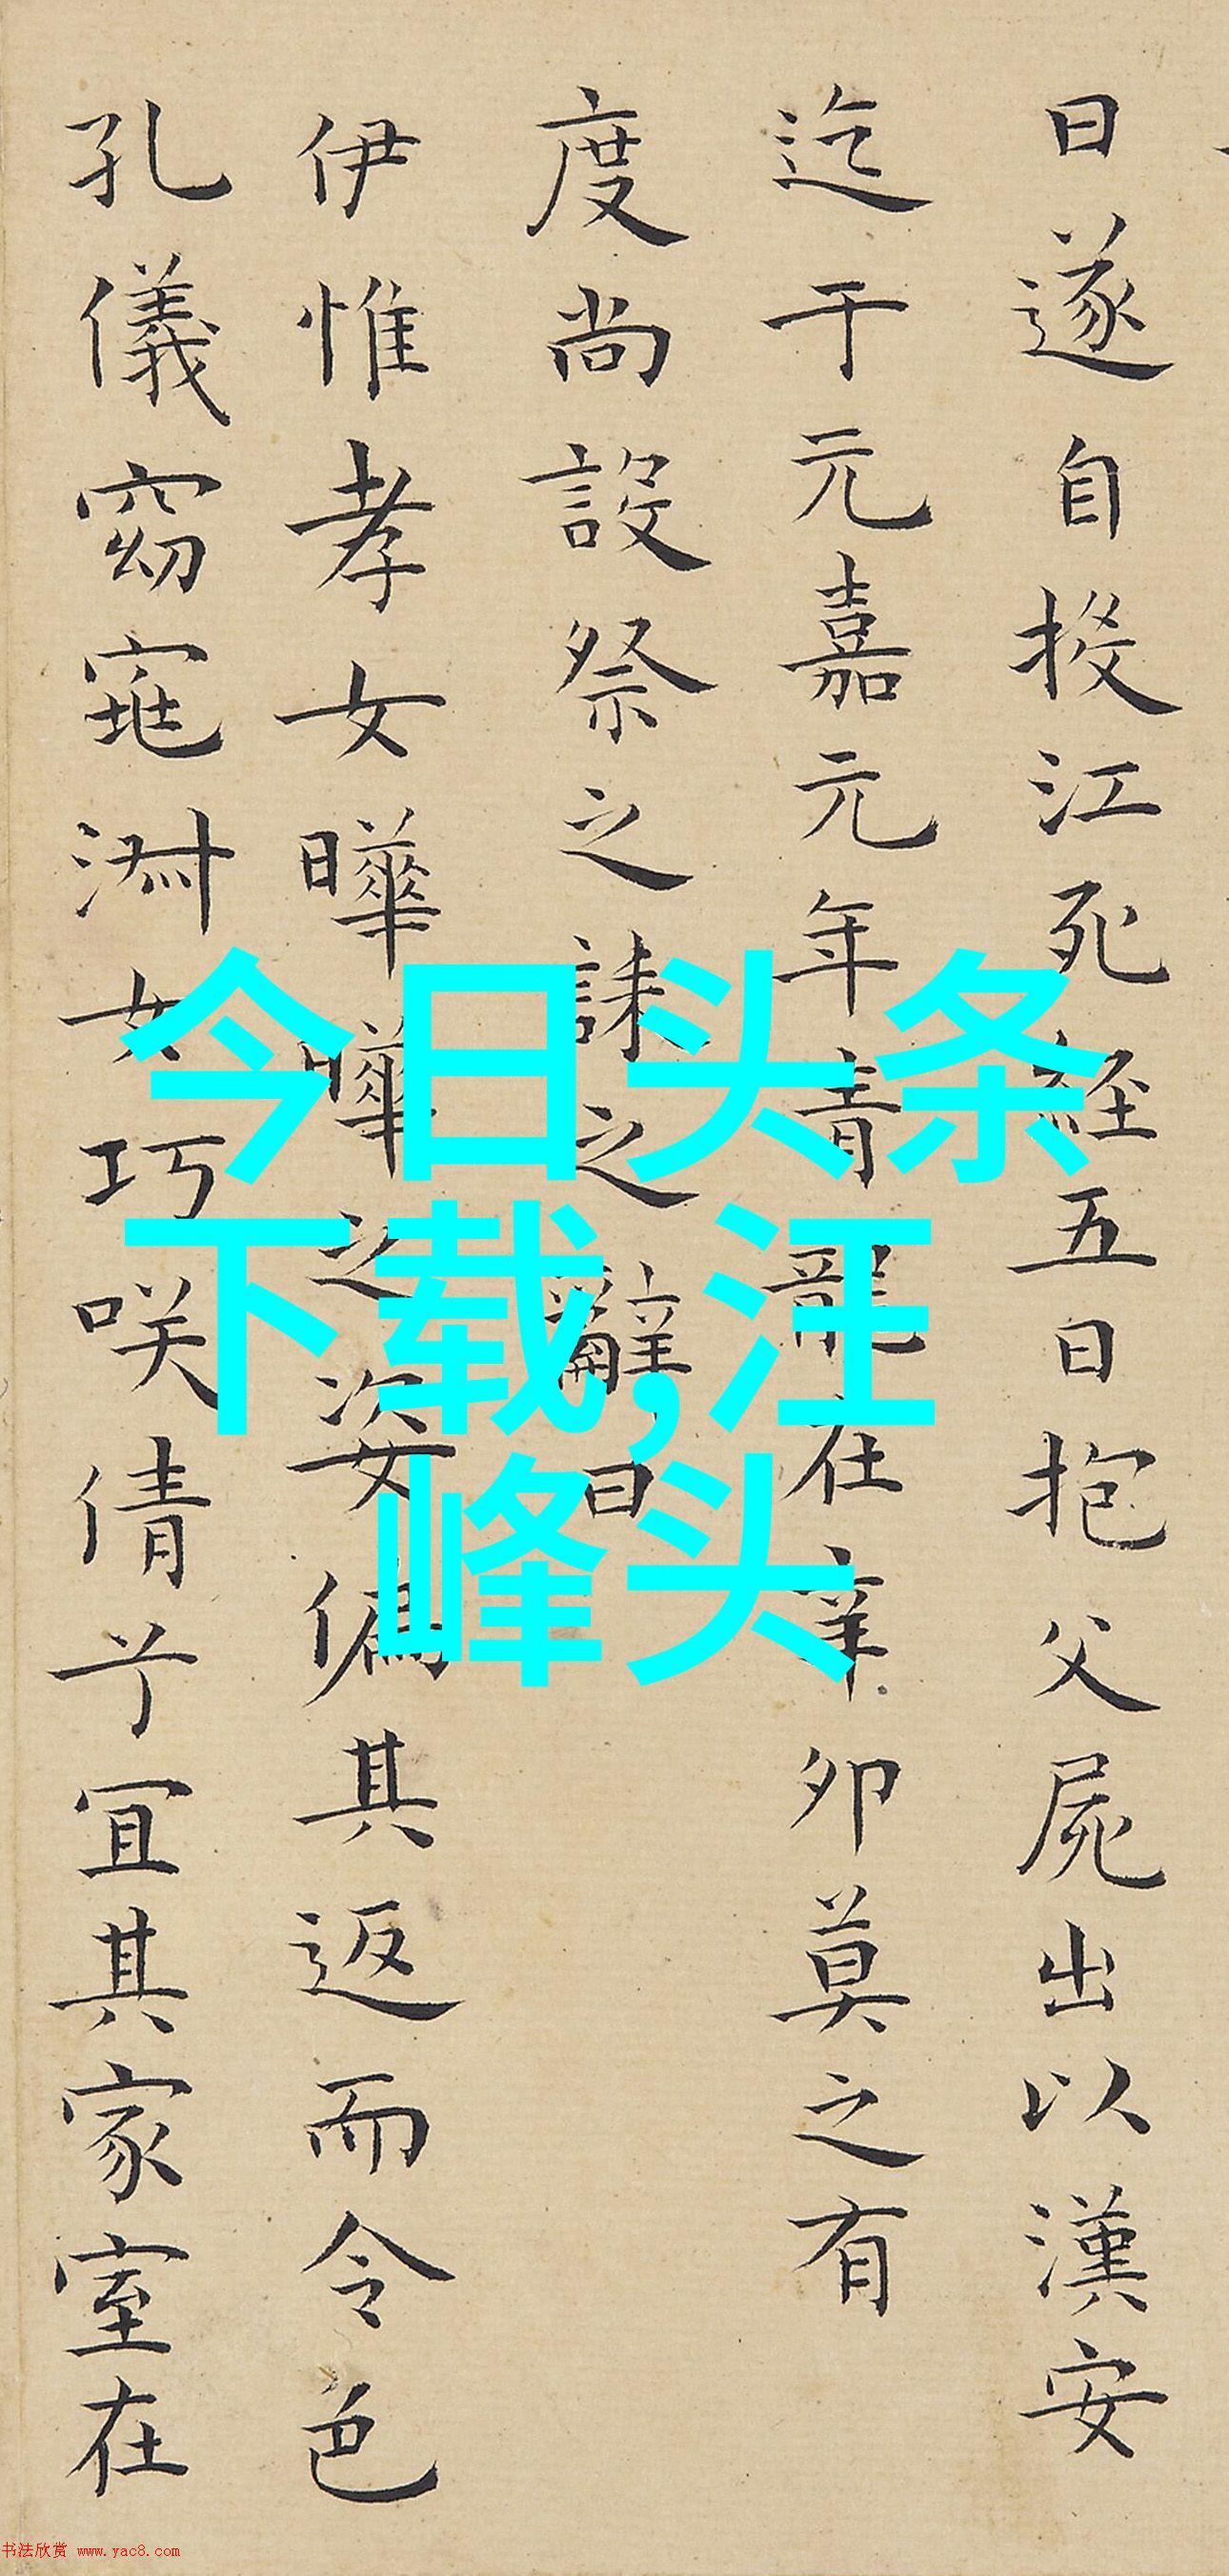 日遂自投江死經五日抱父屍出以漢安
迄于元嘉元年青龍在辛卯莫之有
度尚設祭之誄之辭曰
伊惟孝女曄曄之姿偏其返而令色
孔儀窈窕淑女巧咲倩兮宜其家室在
今日头条
下载,汪
峰头
书法欣赏 www.yac8.com